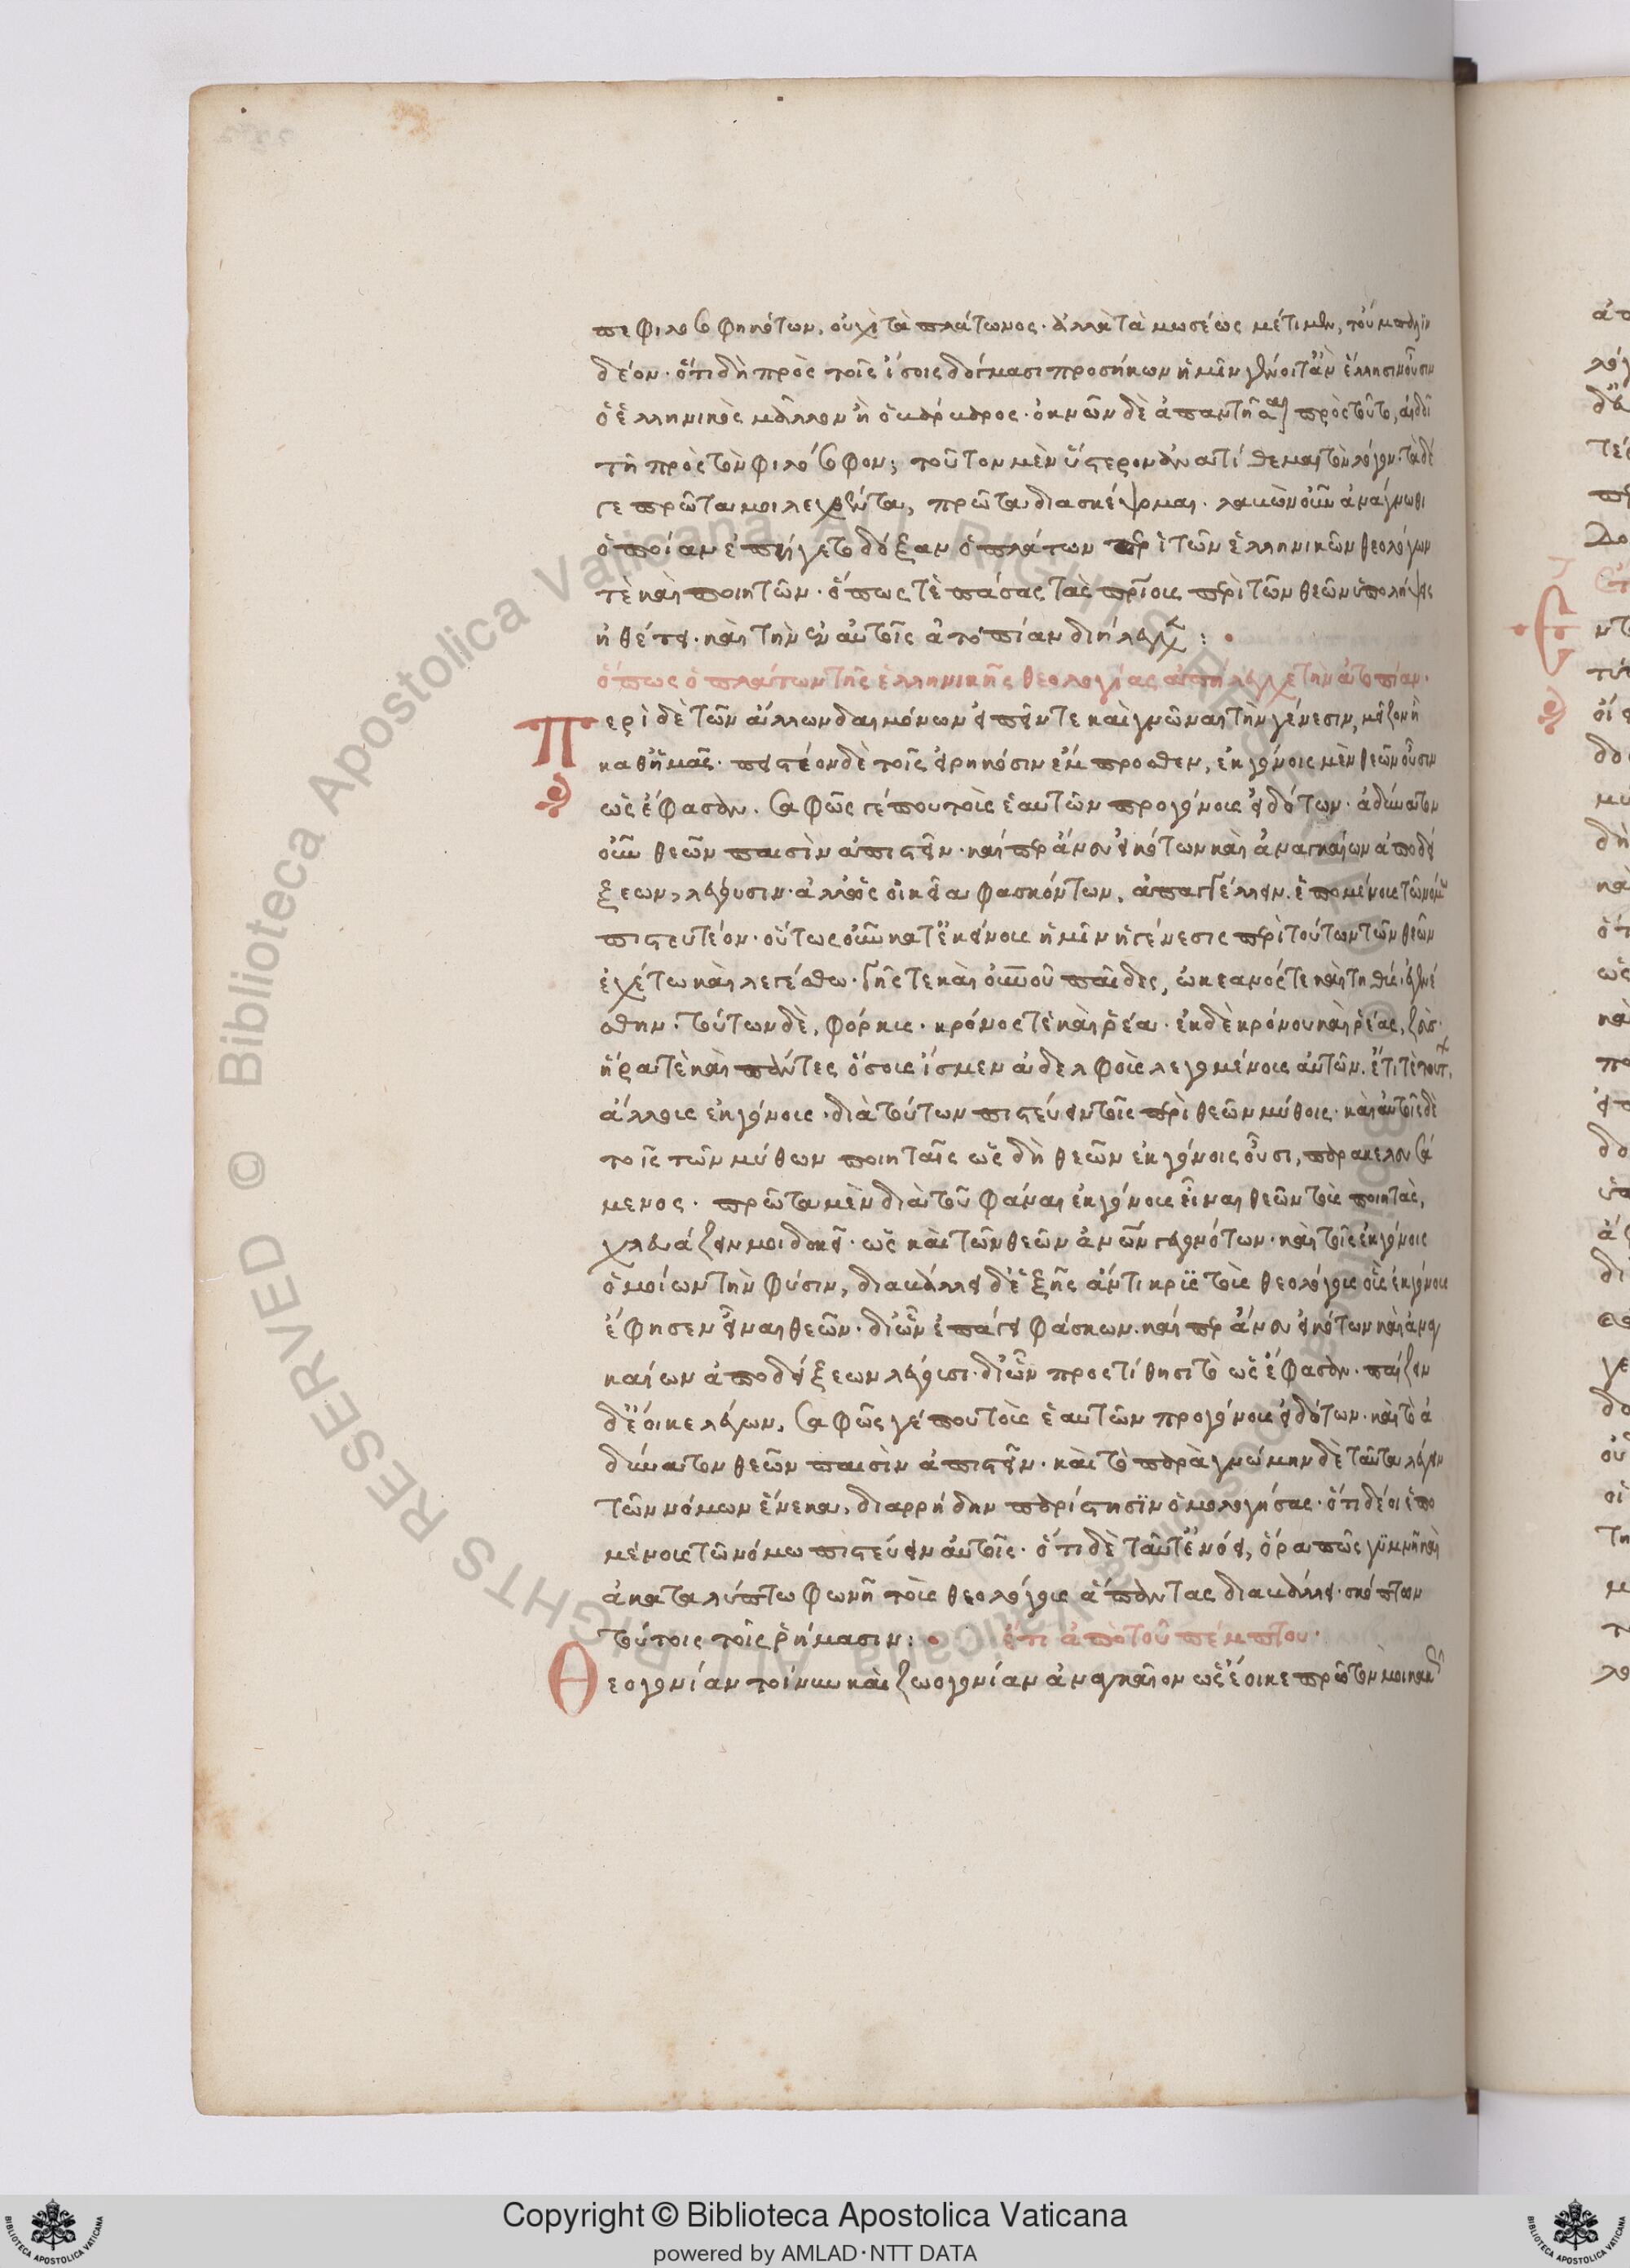 πεφιλοσοφηκότων, οὐχὶ τὰ πλάτωνος· ἀλλὰ τὰ μωσέως μέτιμεν,
δέον· ὅτι δὴ πρὸς τοῖς ἴσοις δόγμασι προσήκων ἡμῖν γένοιτ' ἂν ἕλλησιν οὖσιν
ὁ ἑλληνικὸς μᾶλλον ἢ ὁ βάρβαρος· ὀκνῶν δὲ ἀπαντῆσαι πρὸς τοῦτο, αἰδοῖ
τῆ πρὸς τὸν φιλόσοφον; τοῦτον μὲν ὕστερον ἀνατίθεμαι τὸν λόγον· τὰ δέ
γε πρῶτα μοι λεχθέντα, πρῶτα διασκέψομαι· λαβὼν οὖν ἀνάγνωθι
ὁποίαν ἐπήγετο δόξαν ὁ πλάτων περὶ τῶν ἑλληνικῶν θεολόγων
τὲ καὶ ποιητῶν· ὅπως τὲ πάσας τὰς πατρίους περὶ τῶν θεῶν ὑπολήψεις
ἠθέτει· καὶ τὴν ἐν αὐτοῖς ἀτοπίαν διήλεγχε :
ὅπως ὁ πλάτων τῆς ἑλληνικῆς θεολογίας ἀπήλεγχε τὴν ἀτοπίαν·
Περὶ δὲ τῶν ἄλλων δαιμόνων εἰπεῖν τε καὶ γνῶναι τὴν γένεσιν, μεῖζον ἢ
καθ' ἡμᾶς· πειστέον δὲ τοῖς εἰρηκόσιν ἔμπροσθεν, ἐκγόνοις μὲν θεῶν οὖσιν
ὡς ἔφασαν. σαφῶς γέ που τοὺς ἑαυτῶν προγόνους εἰδότων· ἀδύνατον
οὖν θεῶν παισὶν ἀπιστεῖν· καίπερ ἄνευ εἰκότων καὶ ἀναγκαίων ἀποδεί
ξεων, λέγουσιν· ἀλλ' ὡς οἰκεῖα φασκόντων, ἀπαγγέλλειν. ἑπομένοις τῶ νόμω
πιστευτέον· οὕτως οὖν κατ' ἐκείνους ἡμῖν ἡ γένεσις περὶ τούτων τῶν θεῶν
ἐχέτω καὶ λεγέσθω· γῆς τε καὶ οὐρανοῦ παῖδες, ὠκεανός τε καὶ τηθὺς ἐγενέ
σθην· τούτων δὲ, φόρκυς· κρόνος τὲ καὶ ῥέα· ἐκ δὲ κρόνου καὶ ῥέας, ζεὺς·
ἥρα τὲ καὶ πάντες ὅσους ἴσμεν ἀδελφοὺς λεγομένους αὐτῶν. ἔτι τὲ τούτων
ἄλλους ἐκγόνους· διὰ τούτων πιστεύειν τοῖς περὶ θεῶν μύθοις· καὶ αὐτοῖς δὲ
τοῖς τῶν μύθων ποιηταῖς ὡς δὴ θεῶν ἐκγόνοις οὖσι, παρακελευσά
μενος· πρῶτα μὲν διὰ τοῦ φάναι ἐκγόνους εἶναι θεῶν τοὺς ποιητὰς,
χλευάζειν μοι δοκεῖ· ὡς καὶ τῶν θεῶν ἀνῶν γεγονότων· καὶ τοῖς ἐκγόνοις
ὁμοίων τὴν φύσιν, διαβάλλει δ' ἑξῆς ἄντικρυς τοὺς θεολόγους οὓς ἐκγόνους
ἔφησεν εἶναι θεῶν· δι' ὧν ἐπάγει φάσκων. καίπερ ἄνευ εἰκότων καὶ ἀναγ
καίων ἀποδείξεων λέγουσι· δι' ὧν προστίθησι τὸ ὡς ἔφασαν· παίζειν
δ' ἔοικε λέγων, σαφῶς γέ που τοὺς ἑαυτῶν προγόνους εἰδότων· καὶ τὸ ἀ
δύνατον θεῶν παισὶν ἀπιστεῖν· καὶ τὸ παρὰ γνώμην δὲ ταῦτα λέγειν
τῶν νόμων ἕνεκα, διαρρήδην παρίστησιν ὁμολογήσας· ὅτι δέοι ἑπο
μένους τῶ νόμω πιστεύειν αὐτοῖς· ὅτι δὲ ταῦτ' ἐνόει, ὅρα πῶς γυμνῆ καὶ
ἀκαταλύπτω φωνῆ τοὺς θεολόγους ἅπαντας διαβάλλει· σκόπτων
τούτοις τοῖς ῥήμασιν : ἔτι ἀπὸ τοῦ πέμπτου·
Θεογονίαν τοίνυν καὶ ζωογονίαν ἀναγκαῖον ὡς ἔοικε πρῶτόν μοι